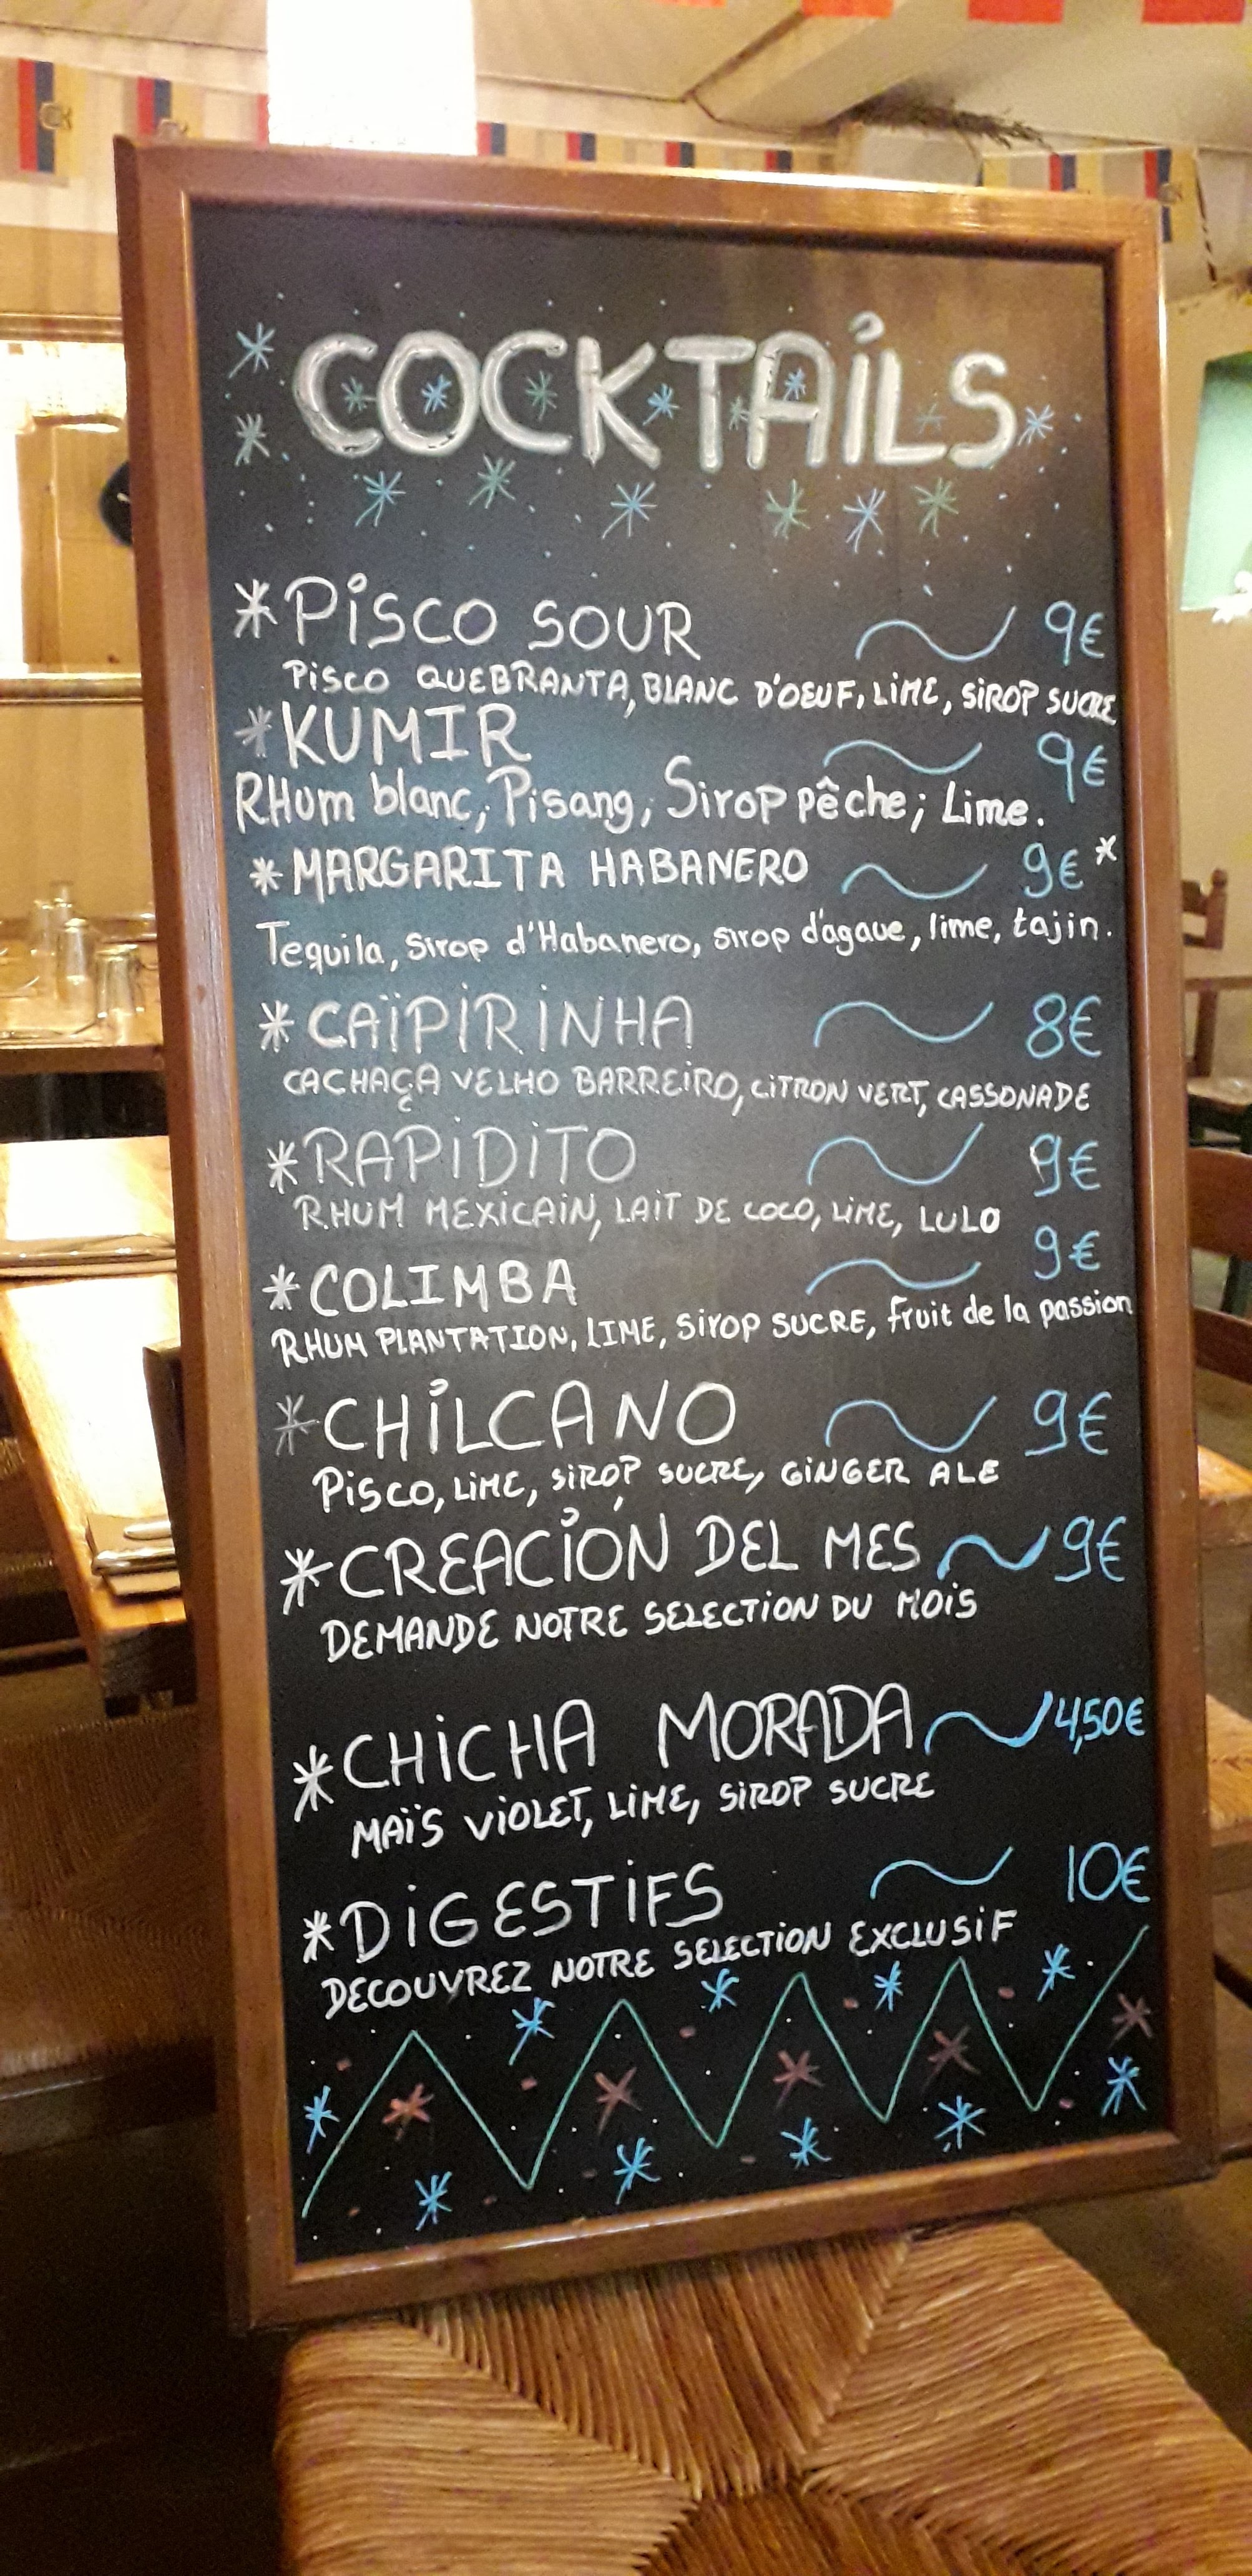 COCKTAILS
* PISCO SOUR ~ 9€
PISCO QUEBRANTA, BLANC D'OEUF, LIME, SIROP SUCRE
* KUMIR ~ 9€
RHum blanc, Pisang, Sirop pêche; Lime.
* MARGARITA HABANERO ~ 9€*
Tequila, sirop d'Habanero, sirop d'agave, lime, tajin.
* CAÏPIRINHA ~ 8€
CACHAÇA VELHO BARREIRO, CITRON VERT, CASSONADE
* RAPIDITO ~ 9€
RHUM MEXICAIN, LAIT DE COCO, LIME, LULO
* COLIMBA ~ 9€
RHUM PLANTATION, LIME, SIROP SUCRE, fruit de la passion
* CHILCANO ~ 9€
PISCO, LIME, SIROP SUCRE, GINGER ALE
* CREACIÓN DEL MES ~ 9€
DEMANDE NOTRE SELECTION DU MOIS
* CHICHA MORADA ~ 4,50€
MAÏS VIOLET, LIME, SIROP SUCRE
* DIGESTIFS ~ 10€
DECOUVREZ NOTRE SELECTION EXCLUSIF